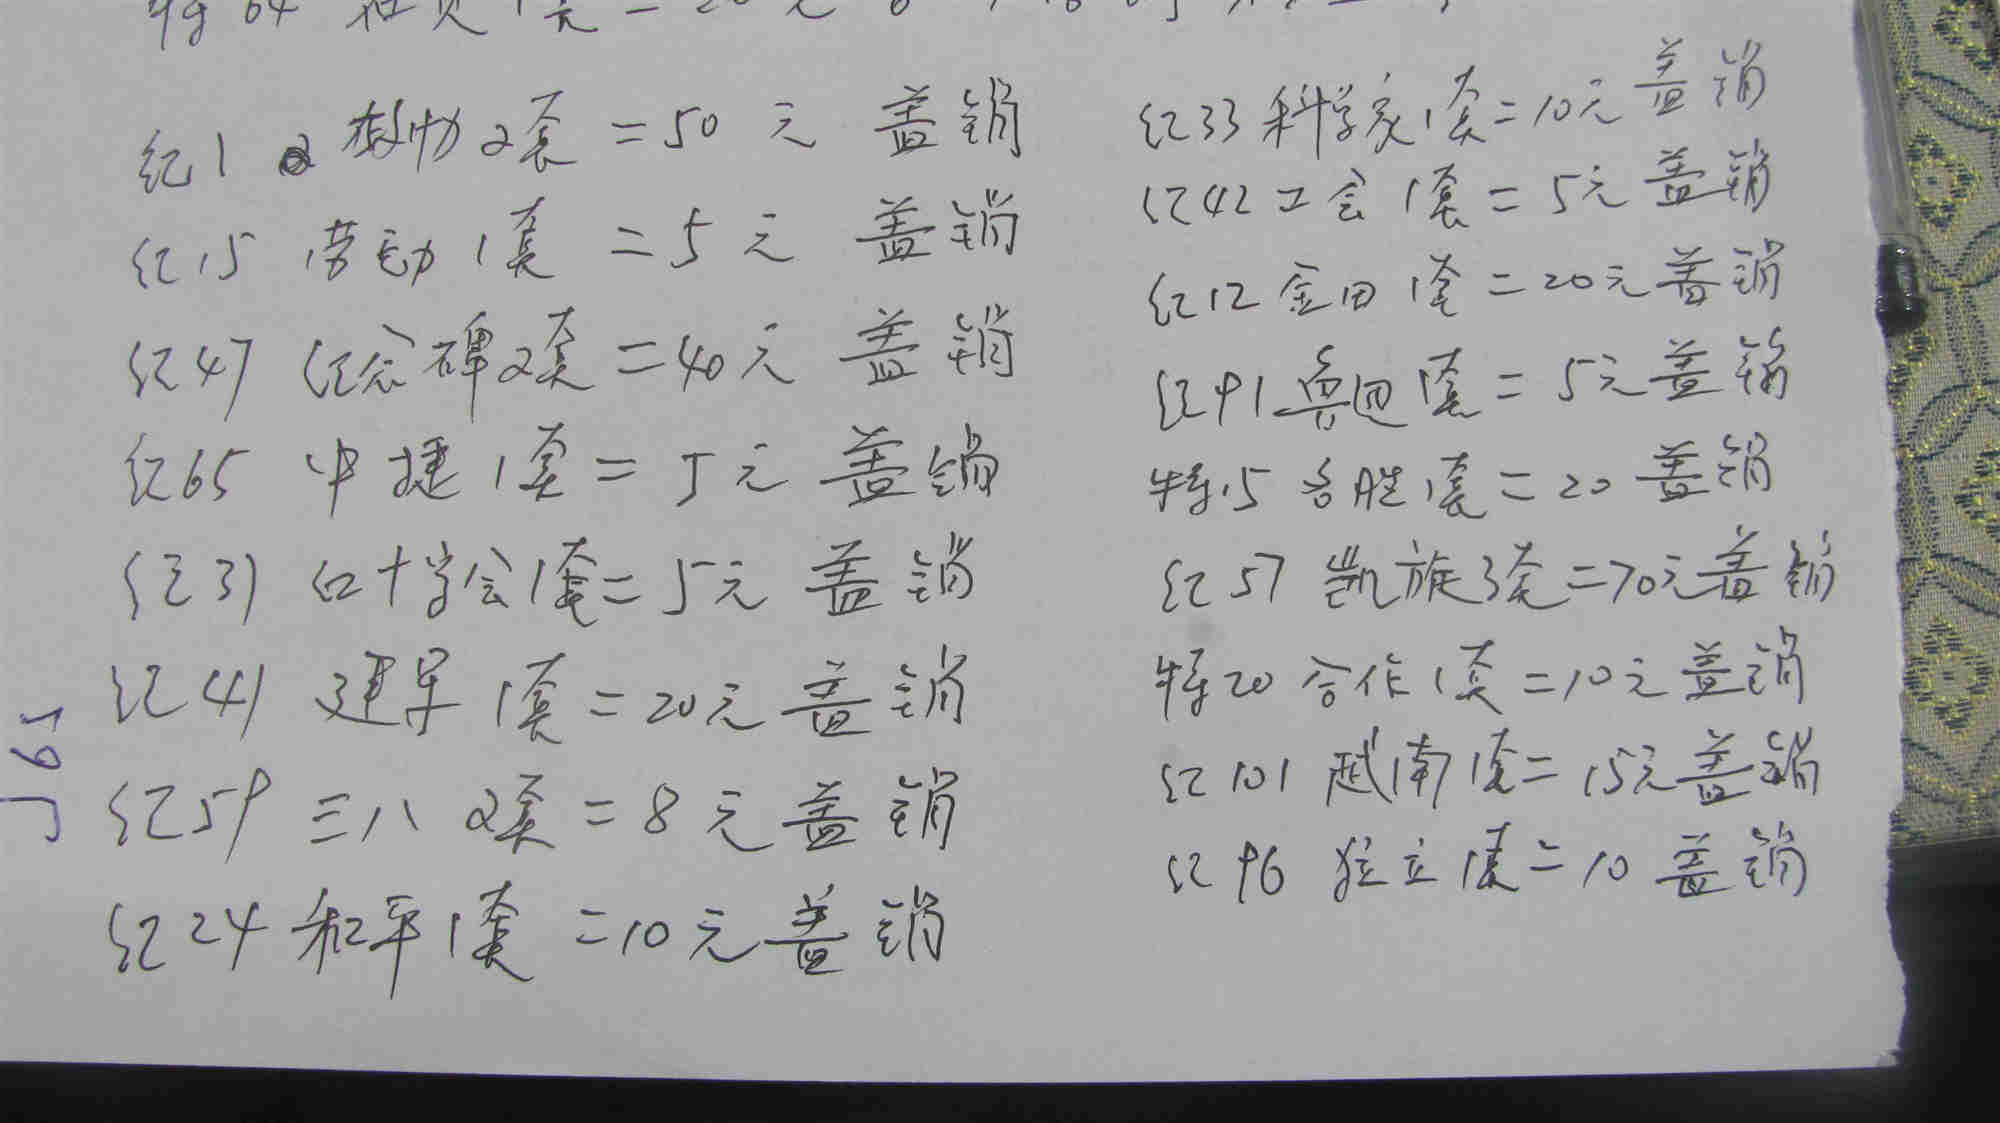 纪1 2 撒切2套=50元 盖销
纪15 劳动1套=5元 盖销
纪47 纪念碑2套=40元 盖销
纪65 中捷1套=5元 盖销
纪31 红十字会1套=5元 盖销
纪41 建军1套=20元 盖销
纪59 三八 2套=8元 盖销
纪24 和平1套=10元 盖销
J61
纪33 科学家1套=10元 盖销
纪42 工会1套=5元 盖销
纪12 金田1套=20元 盖销
纪91 鲁迅1套=5元 盖销
特15 名胜1套=20 盖销
纪57 凯旋3套=70元 盖销
特20 合作1套=10元 盖销
纪101 越南1套=15元 盖销
纪96 独立1套=10 盖销